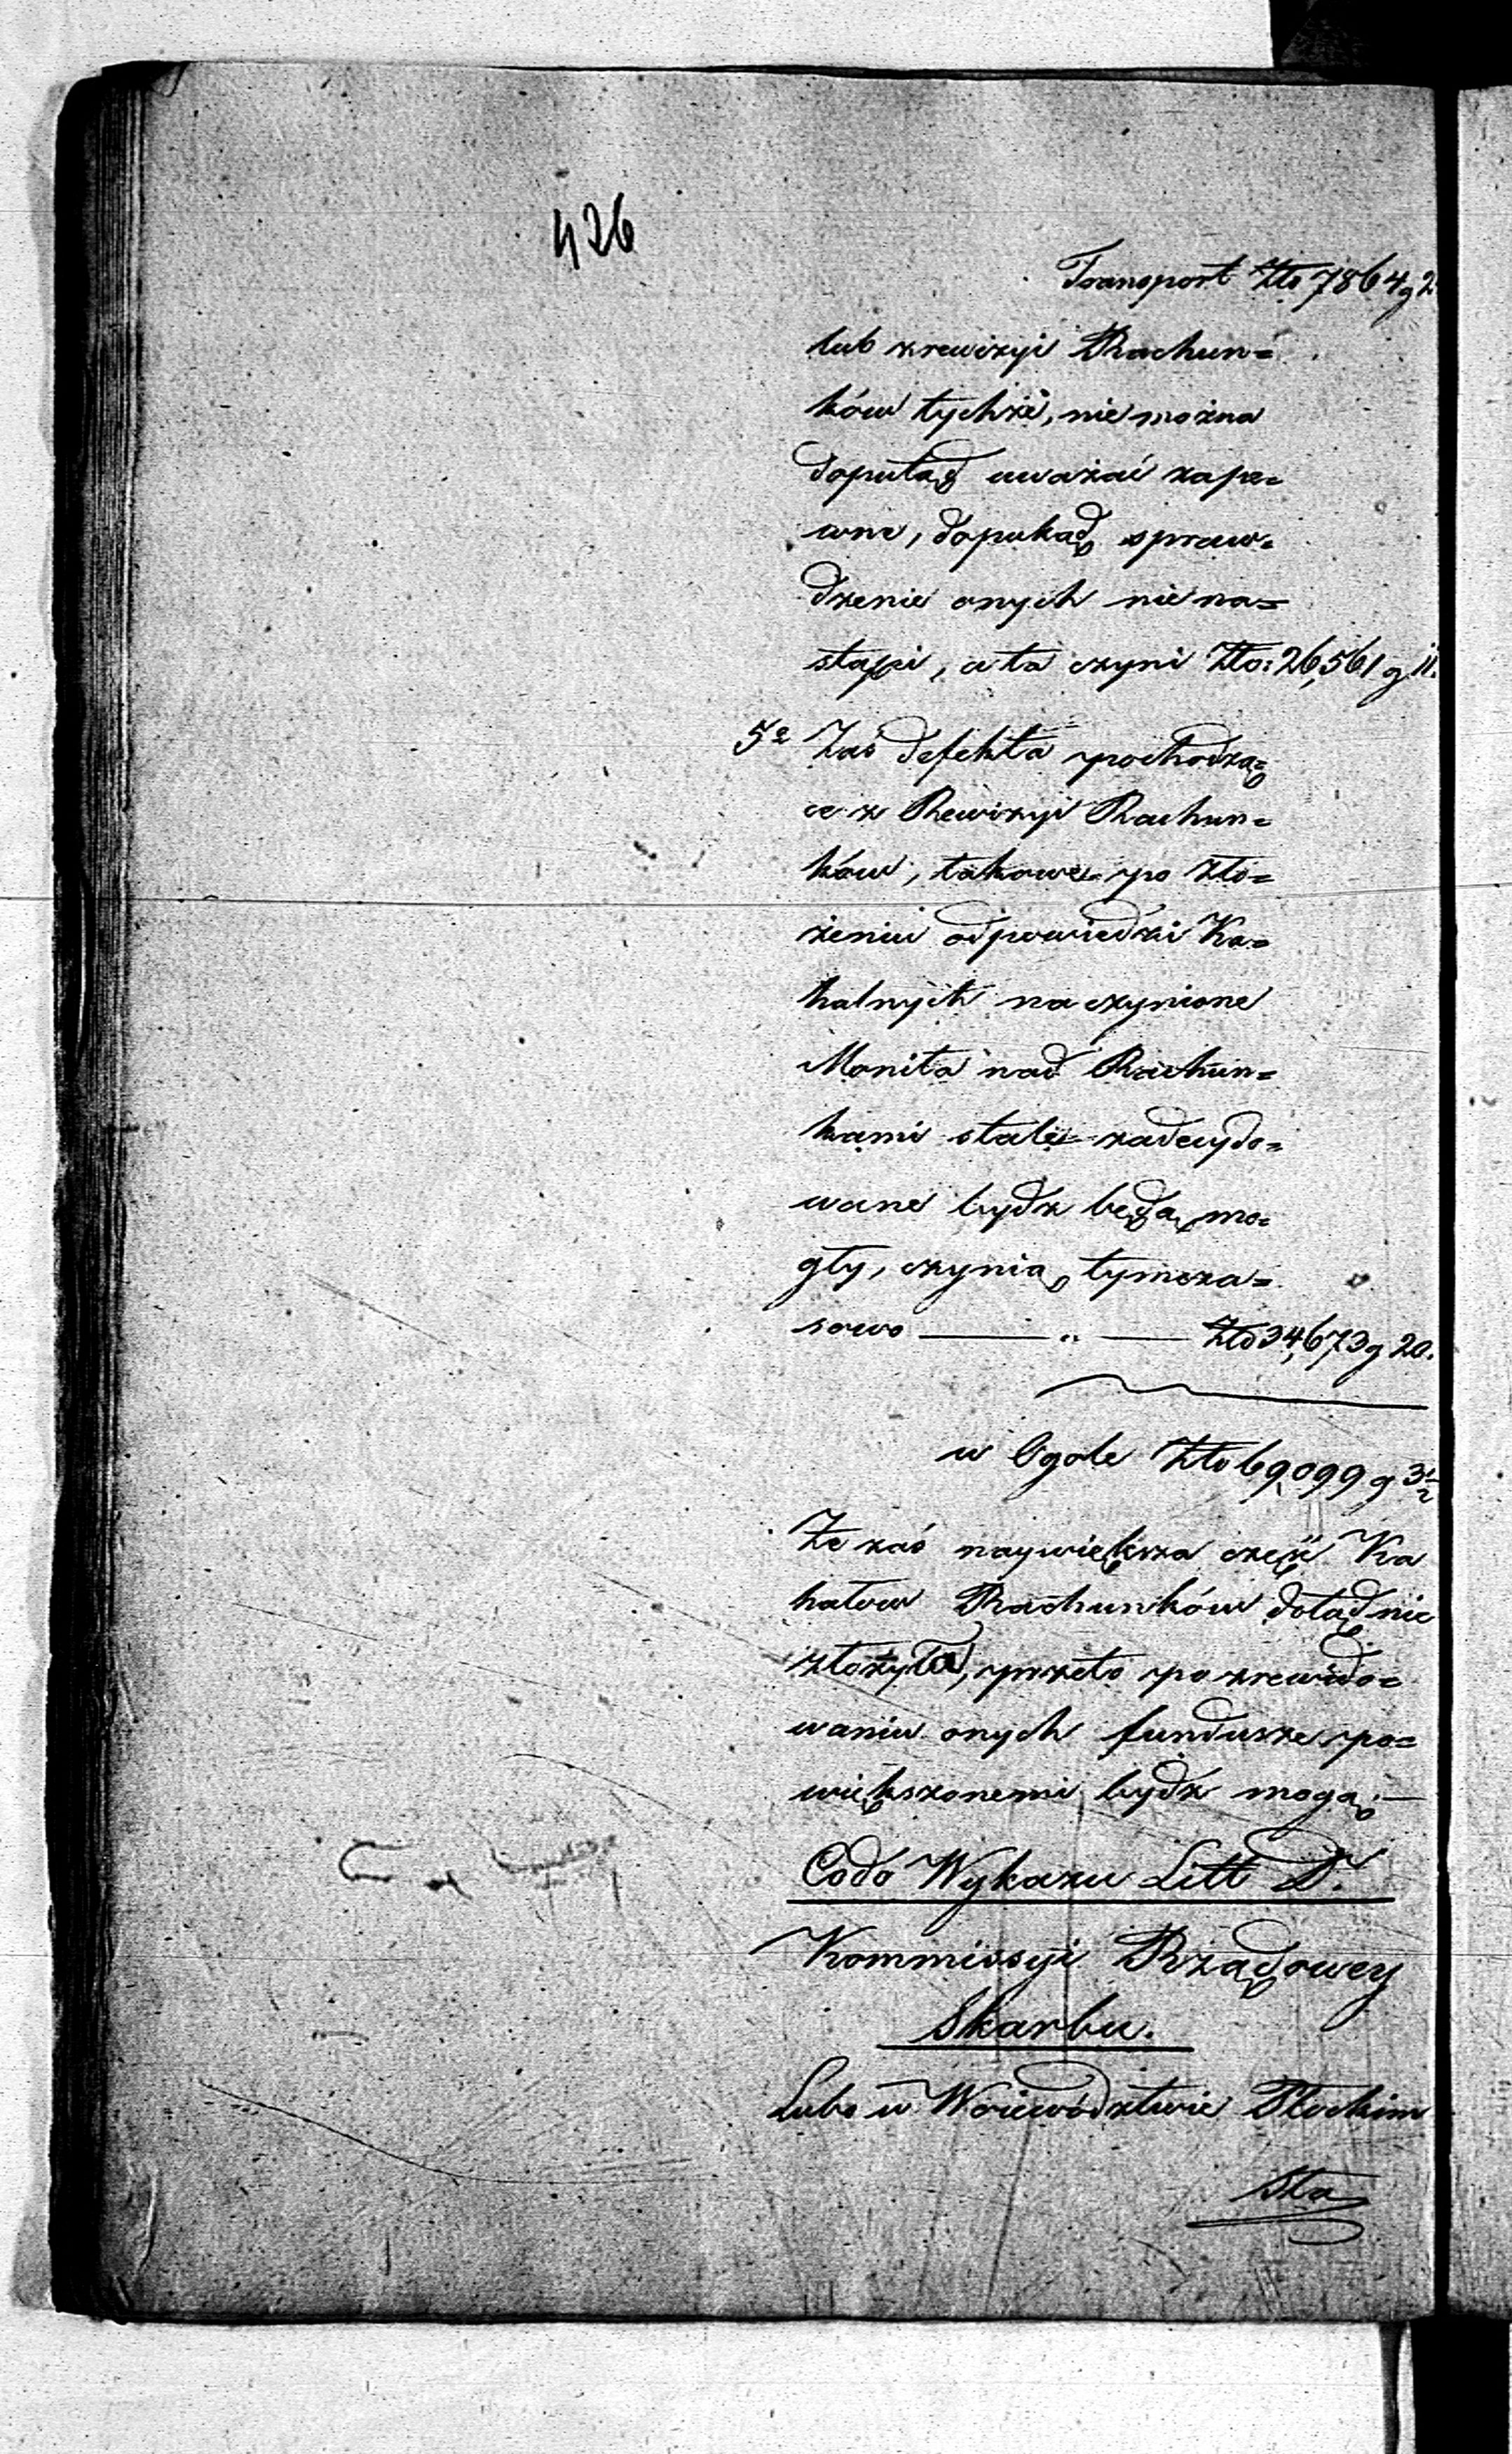 426
Transport Złto 7864 g 2
lub zrewizyi Rachun=
ków tychże, nie można
doputąd uważać zape=
wne, dopukąd spraw=
dzenie onych nie na=
stąpi, a ta czyni Złto: 26,561 g 11.
5e Zaś defekta pochodzą=
ce z Rewizyi Rachun=
ków, takowe po zło=
żeniu odpowiedzi Ka=
halnych na czynione
Monita nad Rachun=
kami stale zadecydo=
wane bydz będą mo=
gły, czynią tymcza=
sowo — " — Złto 34,673 g 20.
w Ogole Złto 69,099 g 3½
Że zaś naywiększa część Ka
hałow Rachunków dotąd nie
złożyła, przeto po zrewido=
waniu onych fundusze po=
większonemi bydz mogą.—
Codo Wykazu Litt D.
Kommissyi Rządowey
Skarbu.
Lubo w Woiewództwie Płockim
sta